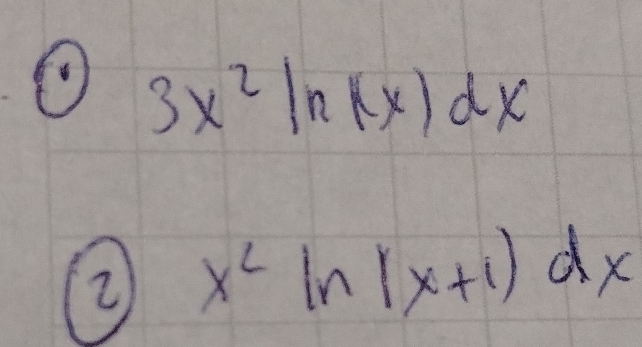 ① 3x² ln(x) dx
② x² ln(x+1) dx